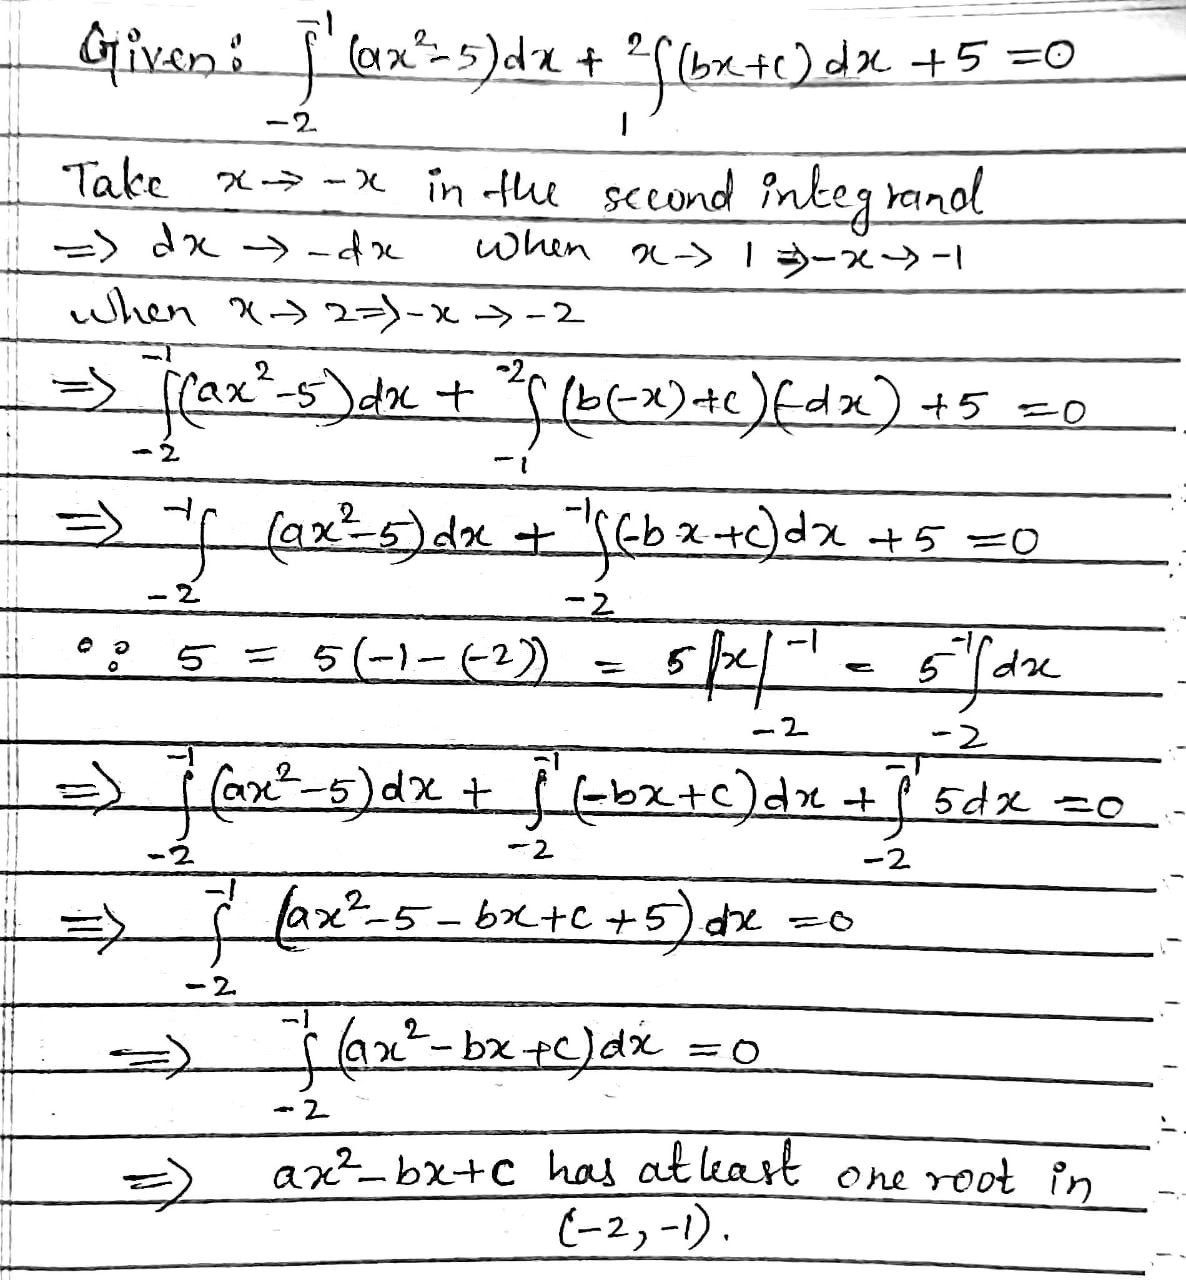 Given: ∫_{-2}^{-1} (ax²-5)dx + ∫_{1}^{2} (bx+c) dx +5 =0
Take x→-x in the second integrand
=> dx → -dx when x→ 1 => -x→ -1
when x→ 2=>-x → -2
=> ∫_{-2}^{-1} (ax²-5)dx + ∫_{-1}^{-2} (b(-x)+c)(-dx) +5 =0
=> ∫_{-2}^{-1} (ax²-5)dx + ∫_{-2}^{-1} (-bx+c)dx +5 =0
∵ 5 = 5(-1-(-2)) = 5|x|_{-2}^{-1} = 5∫_{-2}^{-1} dx
=> ∫_{-2}^{-1} (ax²-5)dx + ∫_{-2}^{-1} (-bx+c)dx + ∫_{-2}^{-1} 5dx =0
=> ∫_{-2}^{-1} (ax²-5-bx+c+5)dx =0
=> ∫_{-2}^{-1} (ax²-bx+c)dx =0
=> ax²-bx+c has atleast one root in
(-2,-1).